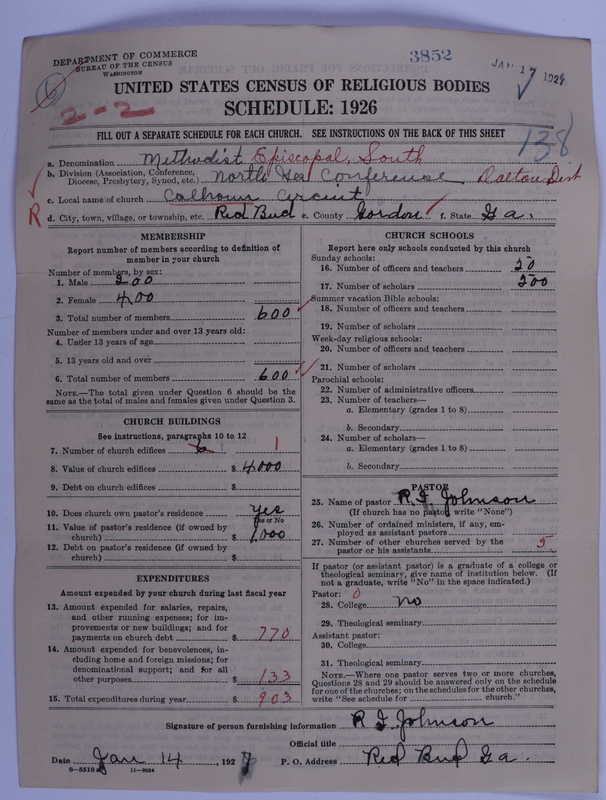 DEPARTMENT OF COMMERCE
BUREAU OF THE CENSUS
WASHINGTON
6
2-2
3852
JAN 17 1927
UNITED STATES CENSUS OF RELIGIOUS BODIES
SCHEDULE: 1926
FILL OUT A SEPARATE SCHEDULE FOR EACH CHURCH. SEE INSTRUCTIONS ON THE BACK OF THIS SHEET
138
a. Denomination Methodist Episcopal, South
b. Division (Association, Conference, Diocese, Presbytery, Synod, etc.) North Ga Conference Dalton Dist
c. Local name of church Calhoun Circuit
R
d. City, town, village, or township, etc. Red Bud e. County Gordon f. State Ga.
MEMBERSHIP
Report number of members according to definition of
member in your church
Number of members, by sex:
1. Male 200
2. Female 400
3. Total number of members 600
Number of members under and over 13 years old:
4. Under 13 years of age
5. 13 years old and over
6. Total number of members 600
NOTE.—The total given under Question 6 should be
same as the total of males and females given under Question 3.
CHURCH BUILDINGS
See instructions, paragraphs 10 to 12
7. Number of church edifices 6 1
8. Value of church edifices $ 4000
9. Debt on church edifices $
10. Does church own pastor's residence yes
Yes or No
11. Value of pastor's residence (if owned by
church) $ 1,000
12. Debt on pastor's residence (if owned by
church) $
EXPENDITURES
Amount expended by your church during last fiscal year
13. Amount expended for salaries, repairs,
and other running expenses; for im-
provements or new buildings; and for
payments on church debt $ 770
14. Amount expended for benevolences, in-
cluding home and foreign missions; for
denominational support; and for all
other purposes $ 133
15. Total expenditures during year $ 903
CHURCH SCHOOLS
Report here only schools conducted by this church
Sunday schools:
16. Number of officers and teachers 20
17. Number of scholars 200
Summer vacation Bible schools:
18. Number of officers and teachers
19. Number of scholars
Week-day religious schools:
20. Number of officers and teachers
21. Number of scholars
Parochial schools:
22. Number of administrative officers
23. Number of teachers—
a. Elementary (grades 1 to 8)
b. Secondary
24. Number of scholars—
a. Elementary (grades 1 to 8)
b. Secondary
PASTOR
25. Name of pastor R. F. Johnson
(If church has no pastor write "None")
26. Number of ordained ministers, if any, em-
ployed as assistant pastors
27. Number of other churches served by the
pastor or his assistants 5
If pastor (or assistant pastor) is a graduate of a college or
theological seminary, give name of institution below. (If
not a graduate, write "No" in the space indicated.)
Pastor: 0
28. College No
29. Theological seminary
Assistant pastor:
30. College
31. Theological seminary
NOTE.—Where one pastor serves two or more churches,
Questions 28 and 29 should be answered only on the schedule
for one of the churches; on the schedules for the other churches,
write "See schedule for church."
Signature of person furnishing information R F Johnson
Official title
Date Jan 14, 1927 P. O. Address Red Bud Ga.
8-5518 11-9034